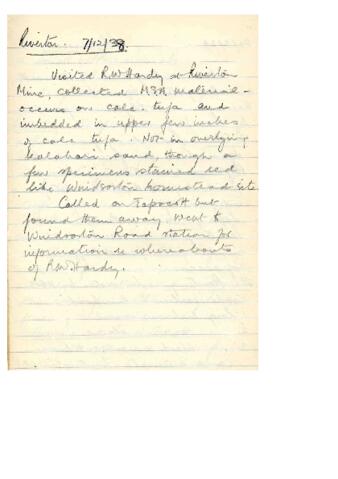 Riverton. 7/12/38.
Visited R.W. Hardy at Riverton
Mine, collected M.S.A. material -
occurs on calc. tufa and
imbedded in upper few inches
of calc tufa. Not in overlying
Kalahari sand, though a
few specimens stained red
like Windsorton homestead site
Called on Tapscott but
found them away. Went to
Windsorton Road station for
information re whereabouts
of R.W. Hardy.